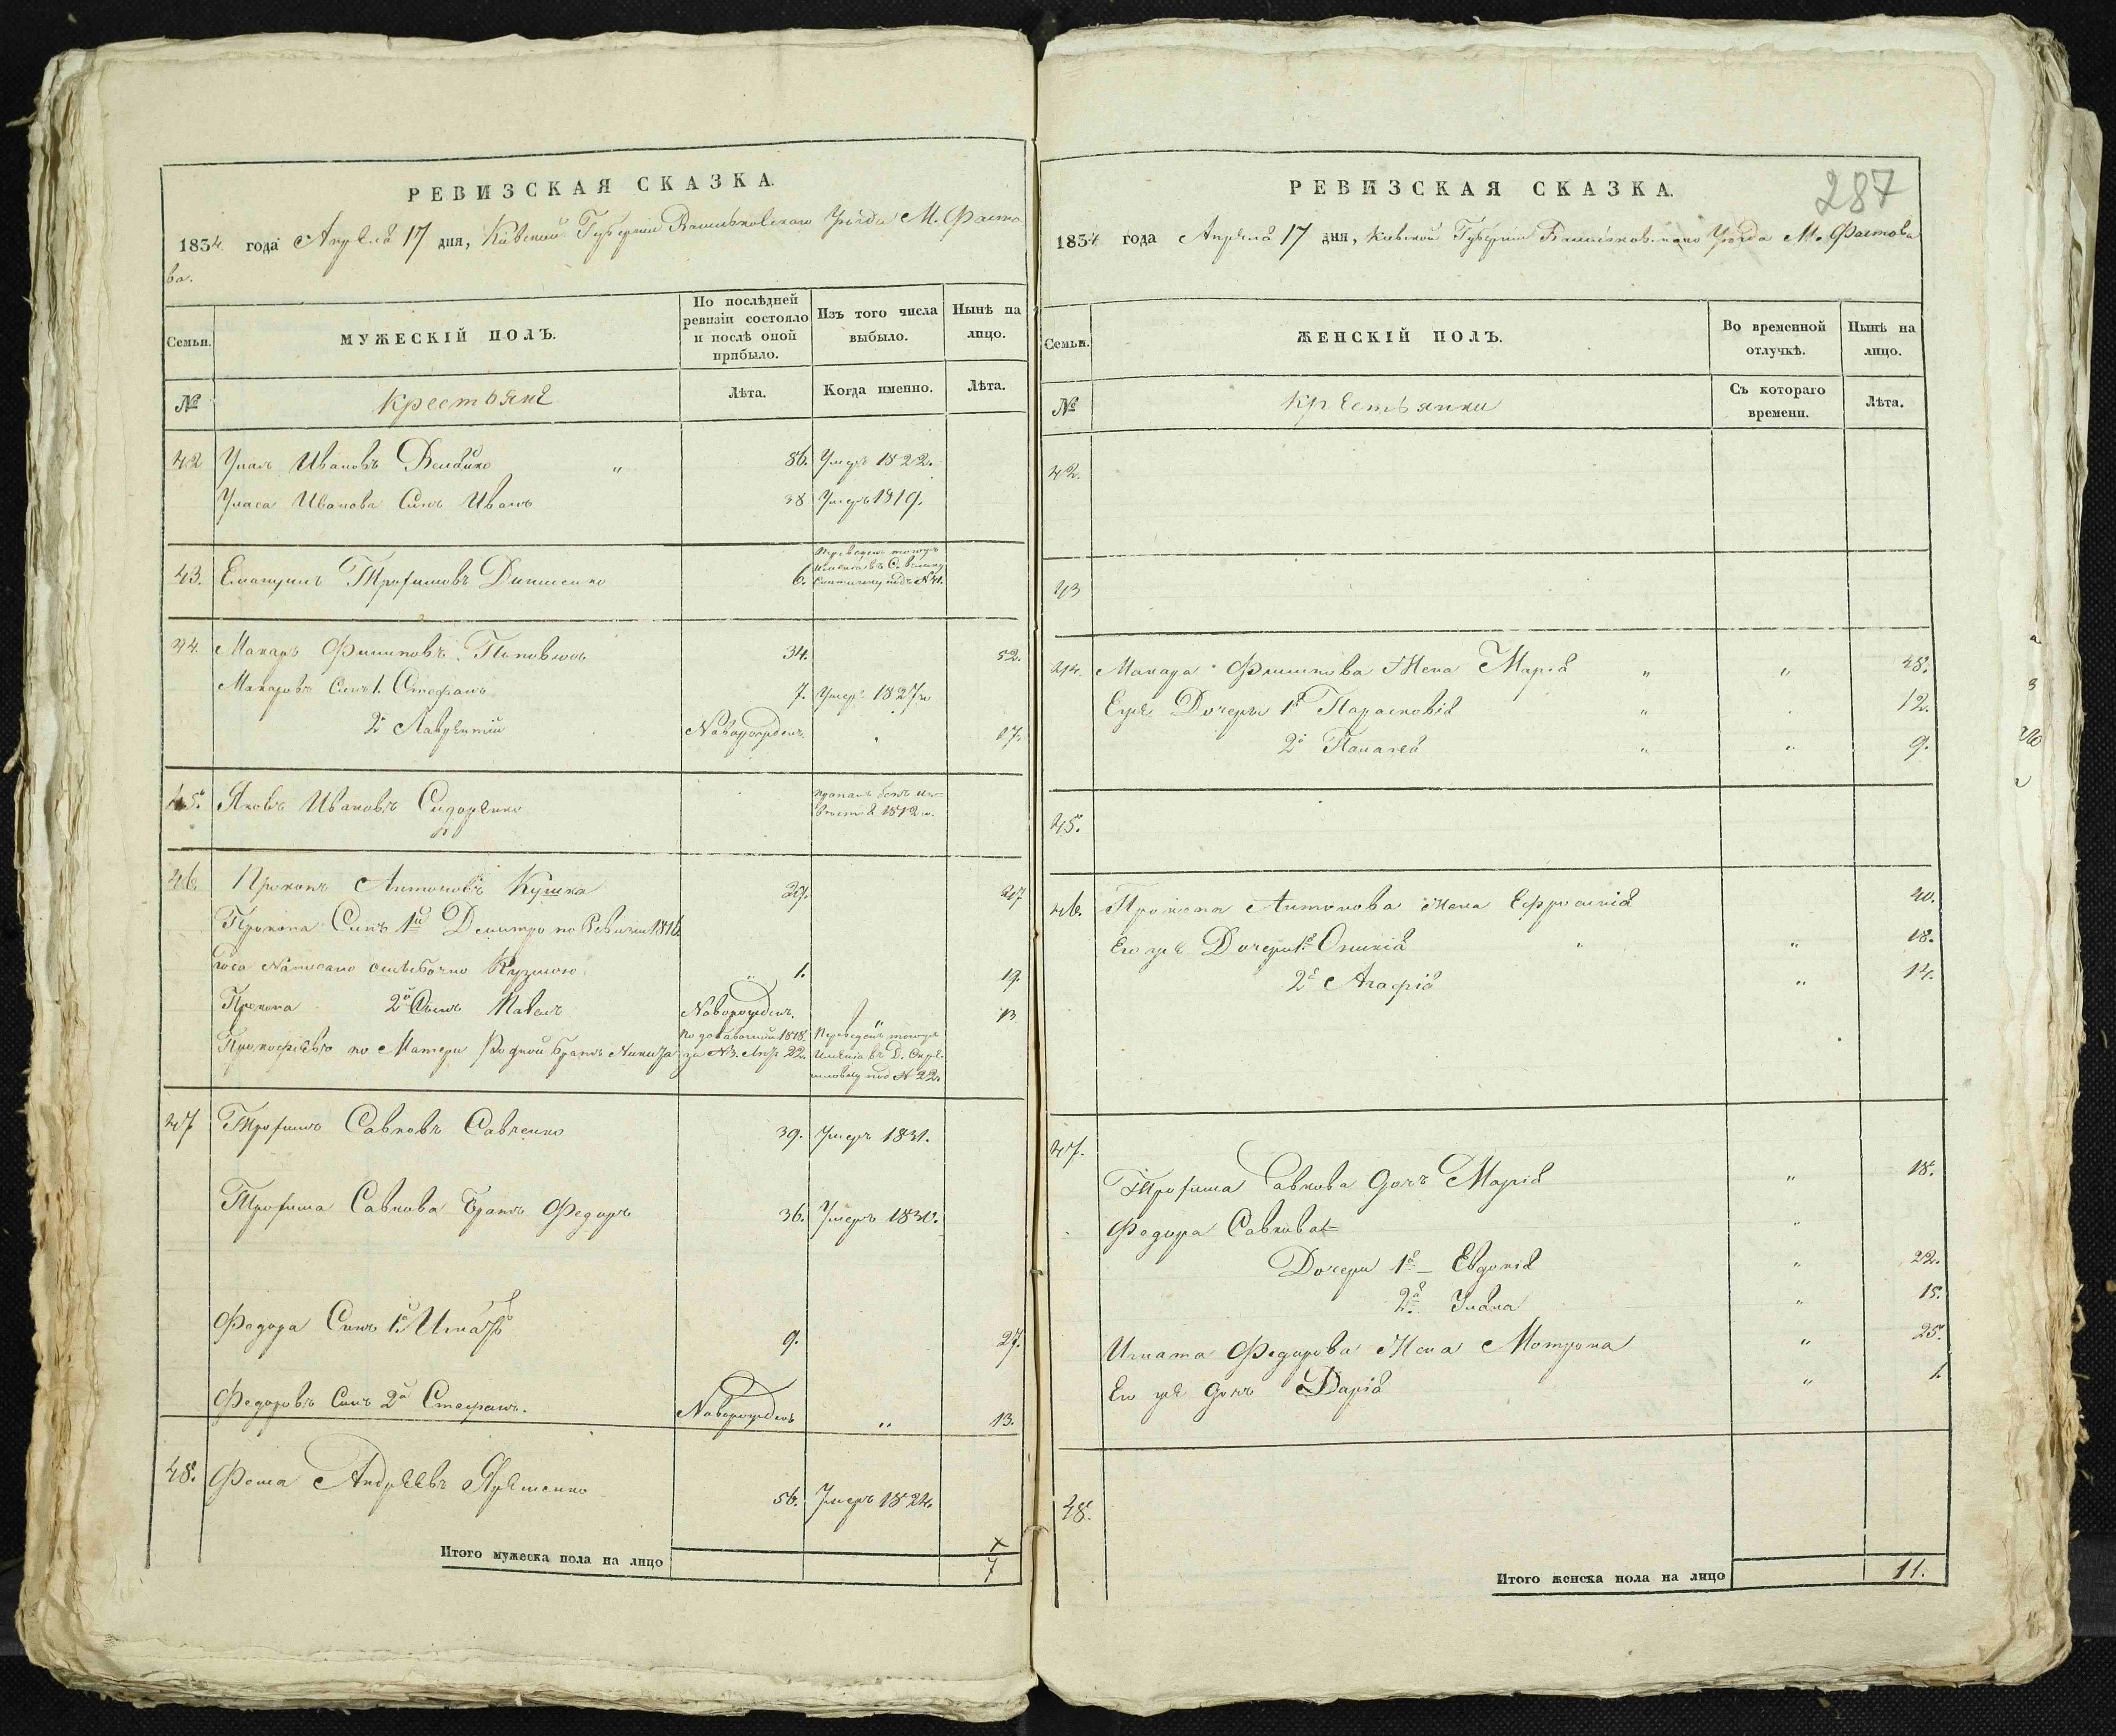 РЕВИЗСКАЯ СКАЗКА.
1834 года Апреля 17 дня, Киевской Губернии Васильковского Уезда М. Фасто
ва.
Семьи.
МУЖЕСКІЙ ПОЛЪ.
По послѣдней ревизіи состояло и послѣ оной прибыло.
Изъ того числа выбыло.
Нынѣ на лицо.
№
Крестьяне
Лѣта.
Когда именно.
Лѣта.
42 Улас Ивановъ 86. Умеръ 1822.
Уласа Иванова Синъ Иванъ 38 Умеръ 1819.
43. Трофимовъ 6. под № 41.
44. Макаръ Филиповъ 34. 52.
Макаровъ Синъ 1. Стефанъ 7. Умеръ 1827го
2й Лаврентий Новорожденъ. 17.
45. Яковъ Ивановъ Сидоренко 1812го.
46. Прокопъ Антоновъ Кушка 29. 47
Прокопа Синъ 1й Демитро по Ревизии 1816
года Написано ошибочно Кузмою 1. 19.
Прокопа 2й Сынъ Павелъ Новорожден. 13
по Матери Родной Братъ Никита за №3. Лѣт 22. Переведенъ тогоже Имения в Д. под № 22.
47 Трофимъ Савковъ Савченко 39. Умеръ 1831.
Трофима Савкова Братъ Федоръ 36. Умеръ 1830.
Федора Синъ 1й Игнатъ 9. 27.
Федоровъ Синъ 2й Стефанъ. Новорожденъ 13.
48. Фома Андреевъ 56. Умеръ 1824.
Итого мужеска пола на лицо 7
287
РЕВИЗСКАЯ СКАЗКА.
1834 года Апреля 17 дня, Киевской Губернии Васильковского Уезда М. Фастова
Семьи.
ЖЕНСКІЙ ПОЛЪ.
Во временной отлучкѣ.
Нынѣ на лицо.
№
Крестьянки
Съ котораго времени.
Лѣта.
42.
43
44. Макара Филипова Жена Мария 48.
Егоже Дочери 1я Парасковия 12.
2я 9.
45.
46. Прокопа Антонова Жена 40.
Его же Дочери 1я 18.
2я Агафия 14.
47.
Трофима Савкова дочъ Мария 18.
Федора Савкова
Дочери 1я Евдокия 22.
2я 15.
Игната Федорова Жена Мотрона 25.
Его же дочъ Дария 1.
48.
Итого женска пола на лицо 11.